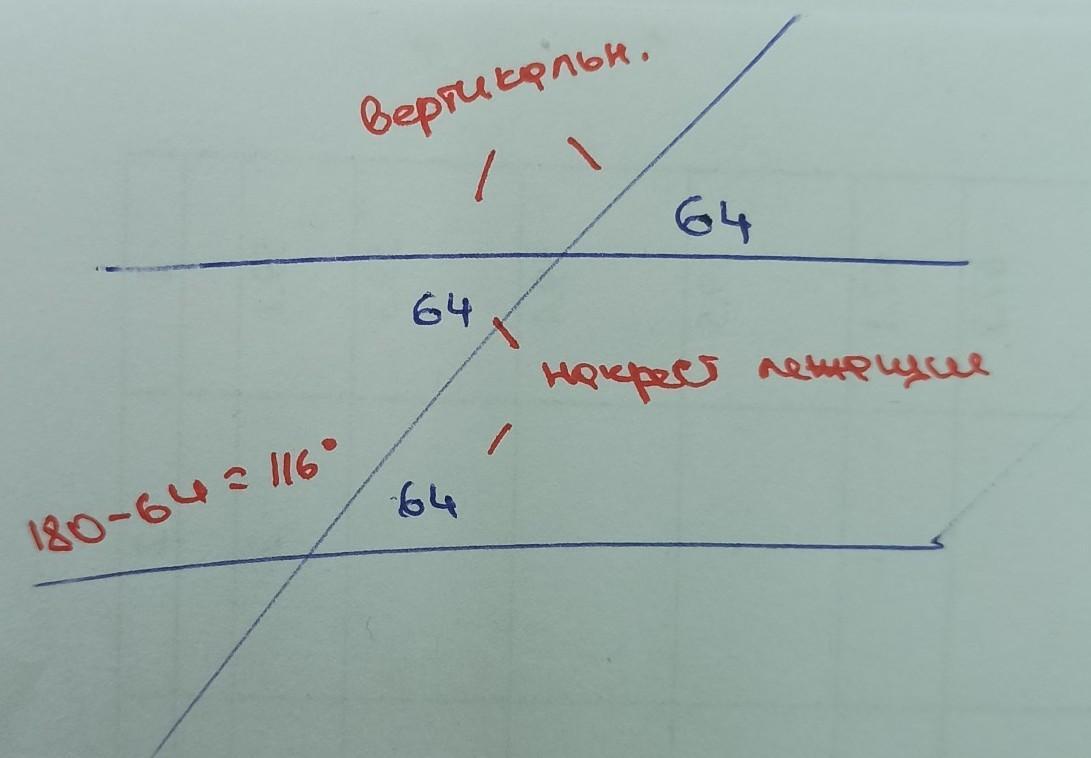 вертикальн.
64
64
накрест лежащие
180-64=116°
64